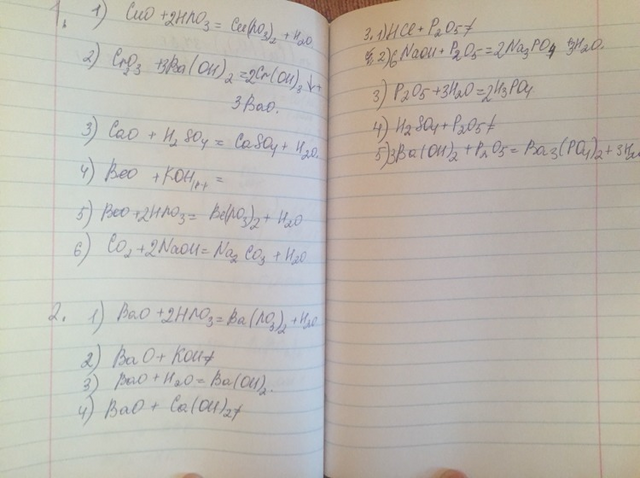 1. 1) CuO + 2HNO3 = Cu(NO3)2 + H2O.
2) CrO3 + 3Ba(OH)2 = 2Cr(OH)3↓ +
3BaO.
3) CaO + H2SO4 = CaSO4 + H2O.
4) BeO + KOH =
5) BeO + 2HNO3 = Be(NO3)2 + H2O
6) CO2 + 2NaOH = Na2CO3 + H2O
2. 1) BaO + 2HNO3 = Ba(NO3)2 + H2O
2) BaO + KOH ≠
3) BaO + H2O = Ba(OH)2.
4) BaO + Ca(OH)2 ≠
3. 1) HCl + P2O5 ≠
2) 6NaOH + P2O5 = 2Na3PO4 3H2O.
3) P2O5 + 3H2O = 2H3PO4
4) H2SO4 + P2O5 ≠
5) 3Ba(OH)2 + P2O5 = Ba3(PO4)2 + 3H2O